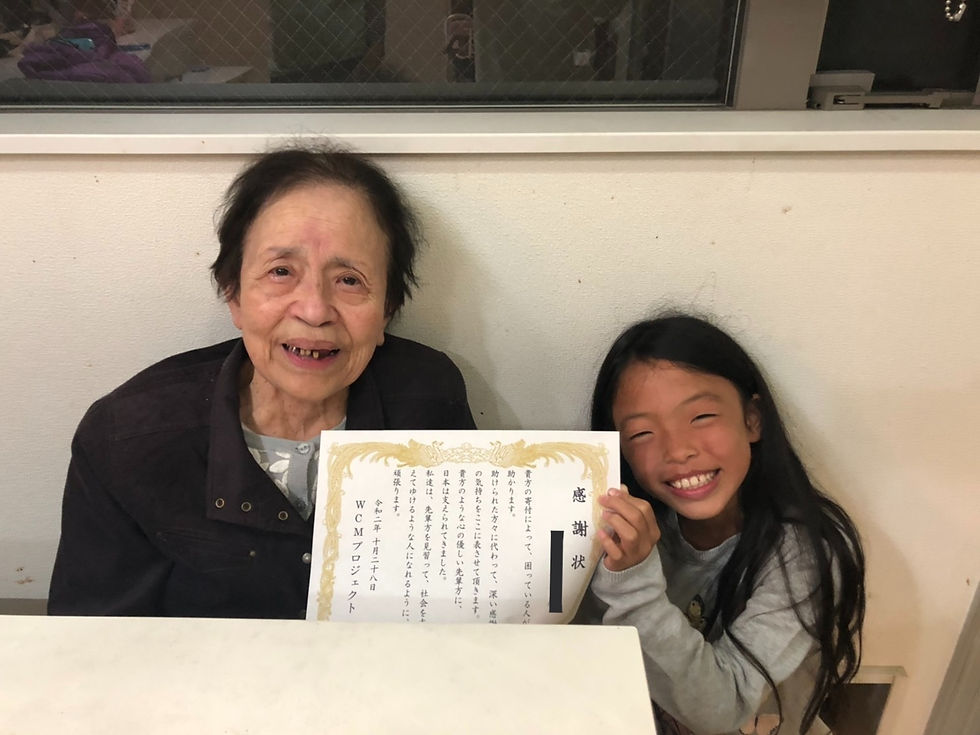 感謝状
貴方の寄付によって、困っている人が
助かります。
助けられた方々に代わって、深い感謝
の気持ちをここに表させて頂きます。
貴方のような心の優しい先輩方に、
日本は支えられてきました。
私達は、先輩方を見習って、社会を
えてゆけるような人になれるように、
頑張ります。
令和二年 十月二十八日
WCMプロジェクト